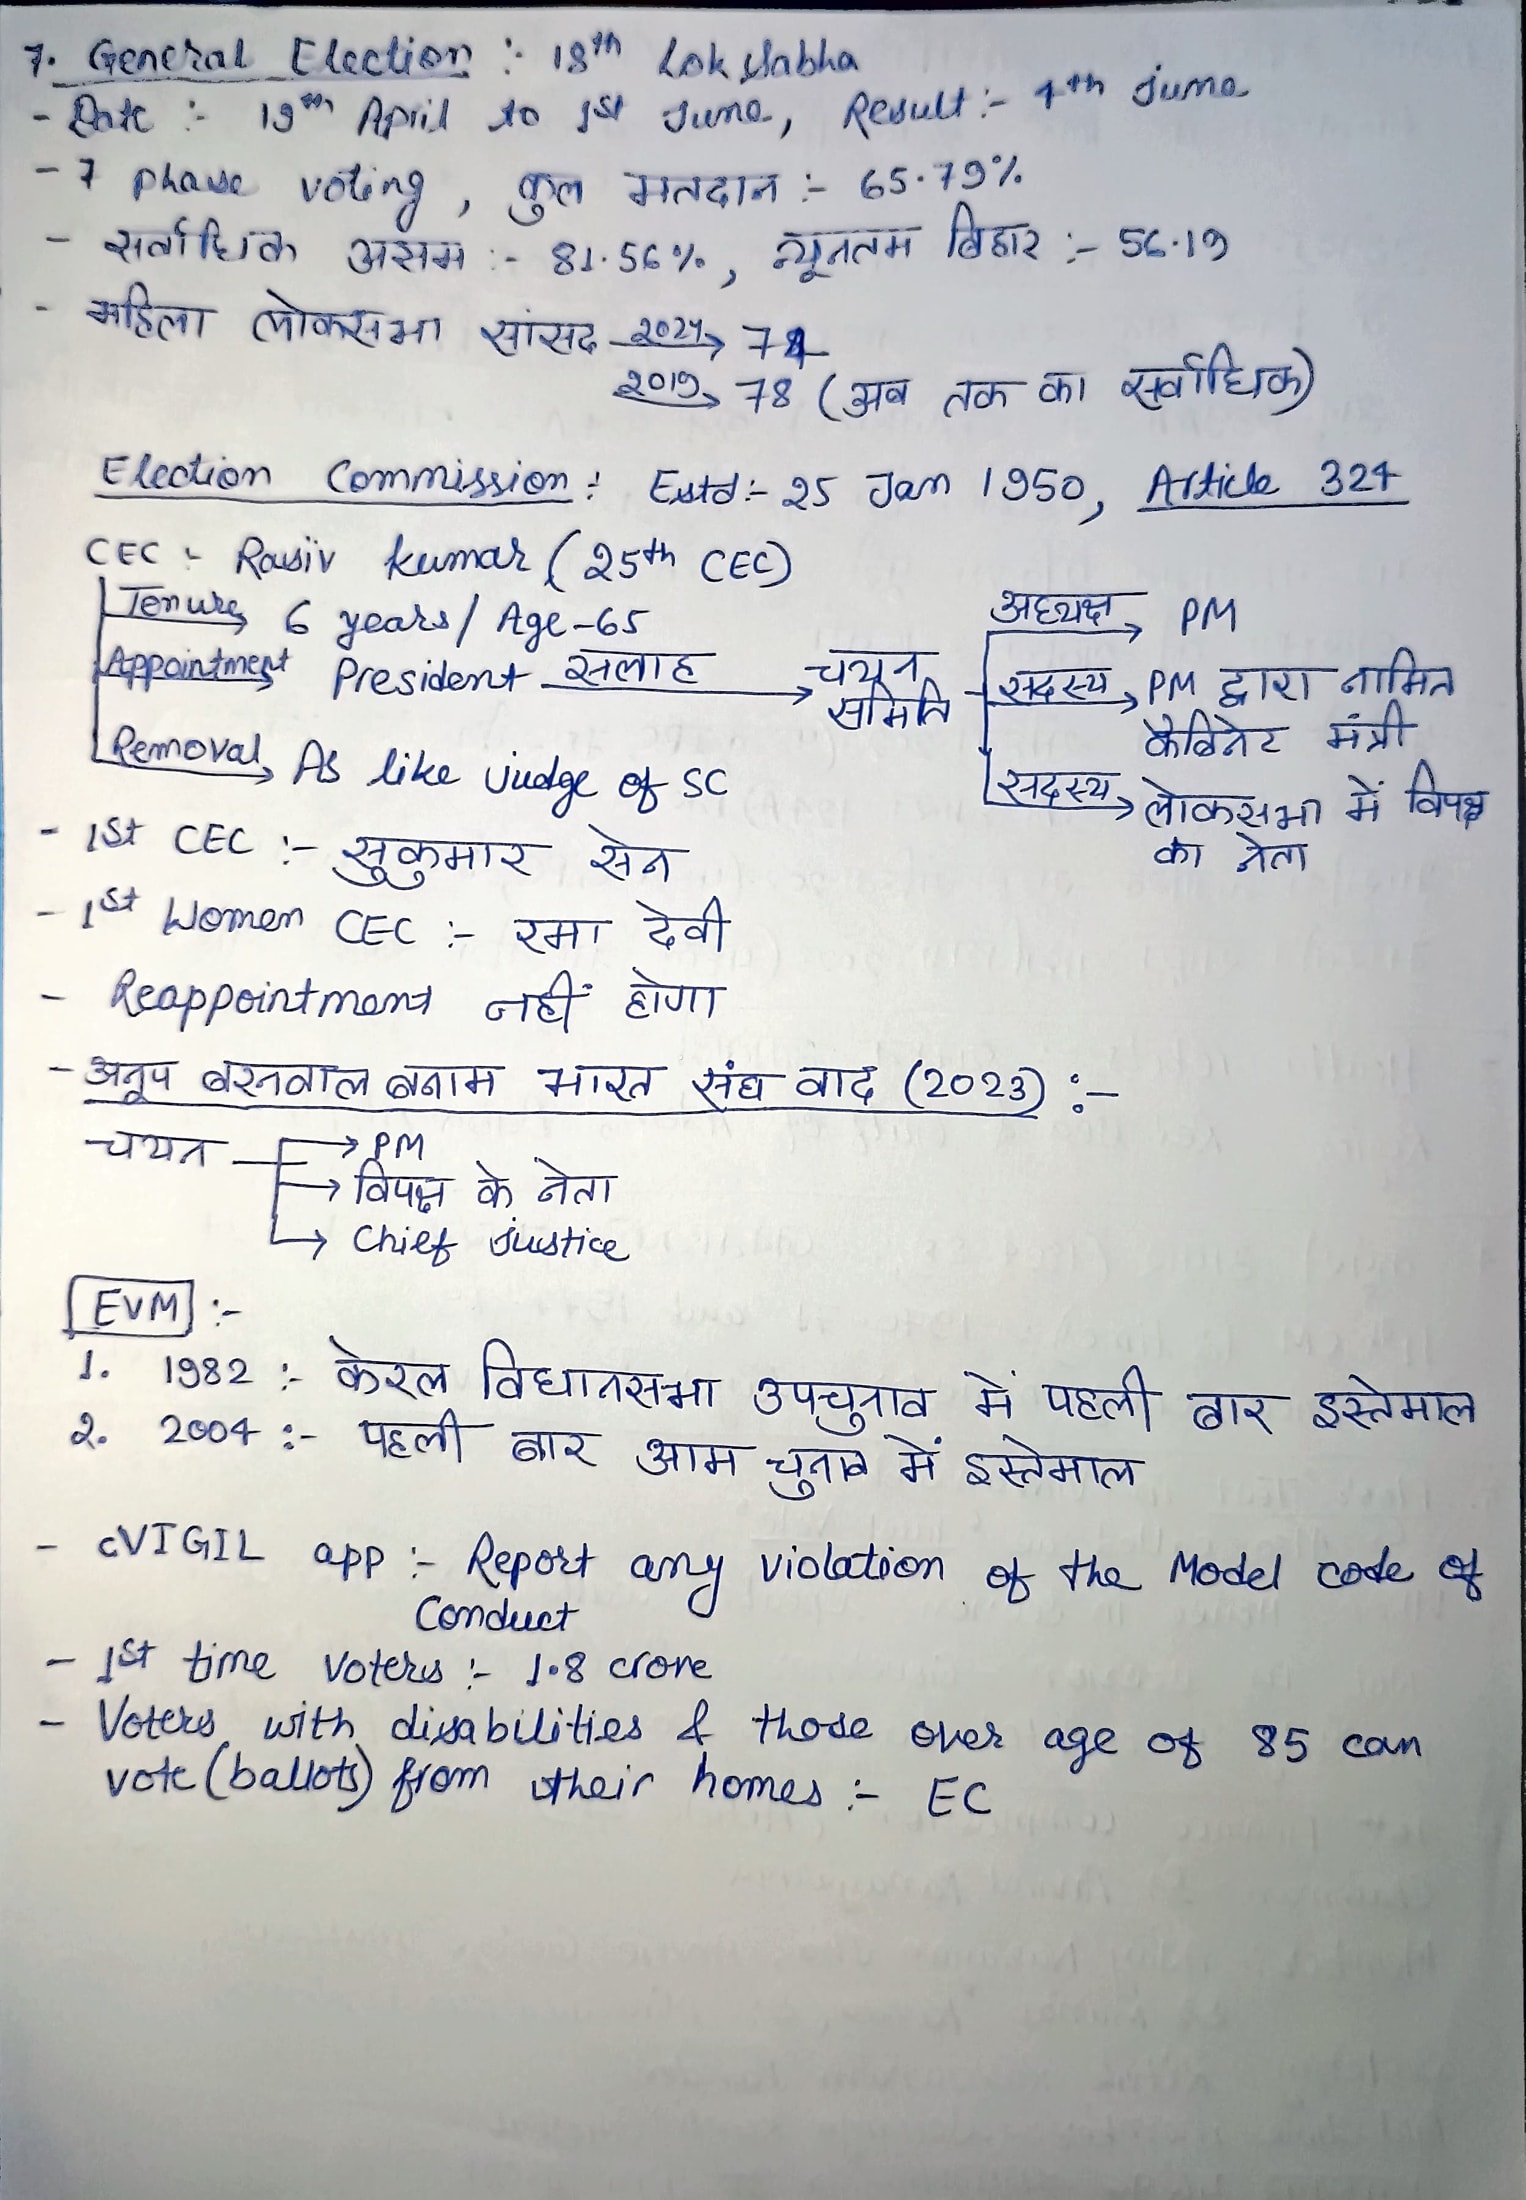 7. General Election :- 18th Lok Sabha
- Date :- 19th April to 1st June, Result :- 4th June
- 7 phase voting, कुल मतदान :- 65.79%
- सर्वाधिक असम :- 81.56%, न्यूनतम बिहार :- 56.19
- महिला लोकसभा सांसद 2024→ 74
2019→ 78 (अब तक का सर्वाधिक)
Election Commission :- Estd :- 25 Jan 1950, Article 324
CEC :- Rajiv Kumar (25th CEC)
Tenure→ 6 years/ Age-65
Appointment→ President सलाह→ चयन समिति
Removal→ As like judge of SC
अध्यक्ष→ PM
सदस्य→ PM द्वारा नामित
कैबिनेट मंत्री
सदस्य→ लोकसभा में विपक्ष
का नेता
- 1st CEC :- सुकुमार सेन
- 1st Women CEC :- रमा देवी
- Reappointment नहीं होगा
- अनूप बरनवाल बनाम भारत संघ वाद (2023) :-
चयन → PM
→ विपक्ष के नेता
→ Chief justice
EVM :-
1. 1982 :- केरल विधानसभा उपचुनाव में पहली बार इस्तेमाल
2. 2004 :- पहली बार आम चुनाव में इस्तेमाल
- cVIGIL app :- Report any violation of the Model code of
Conduct
- 1st time voters :- 1.8 crore
- Voters with disabilities & those over age of 85 can
vote (ballots) from their homes :- EC